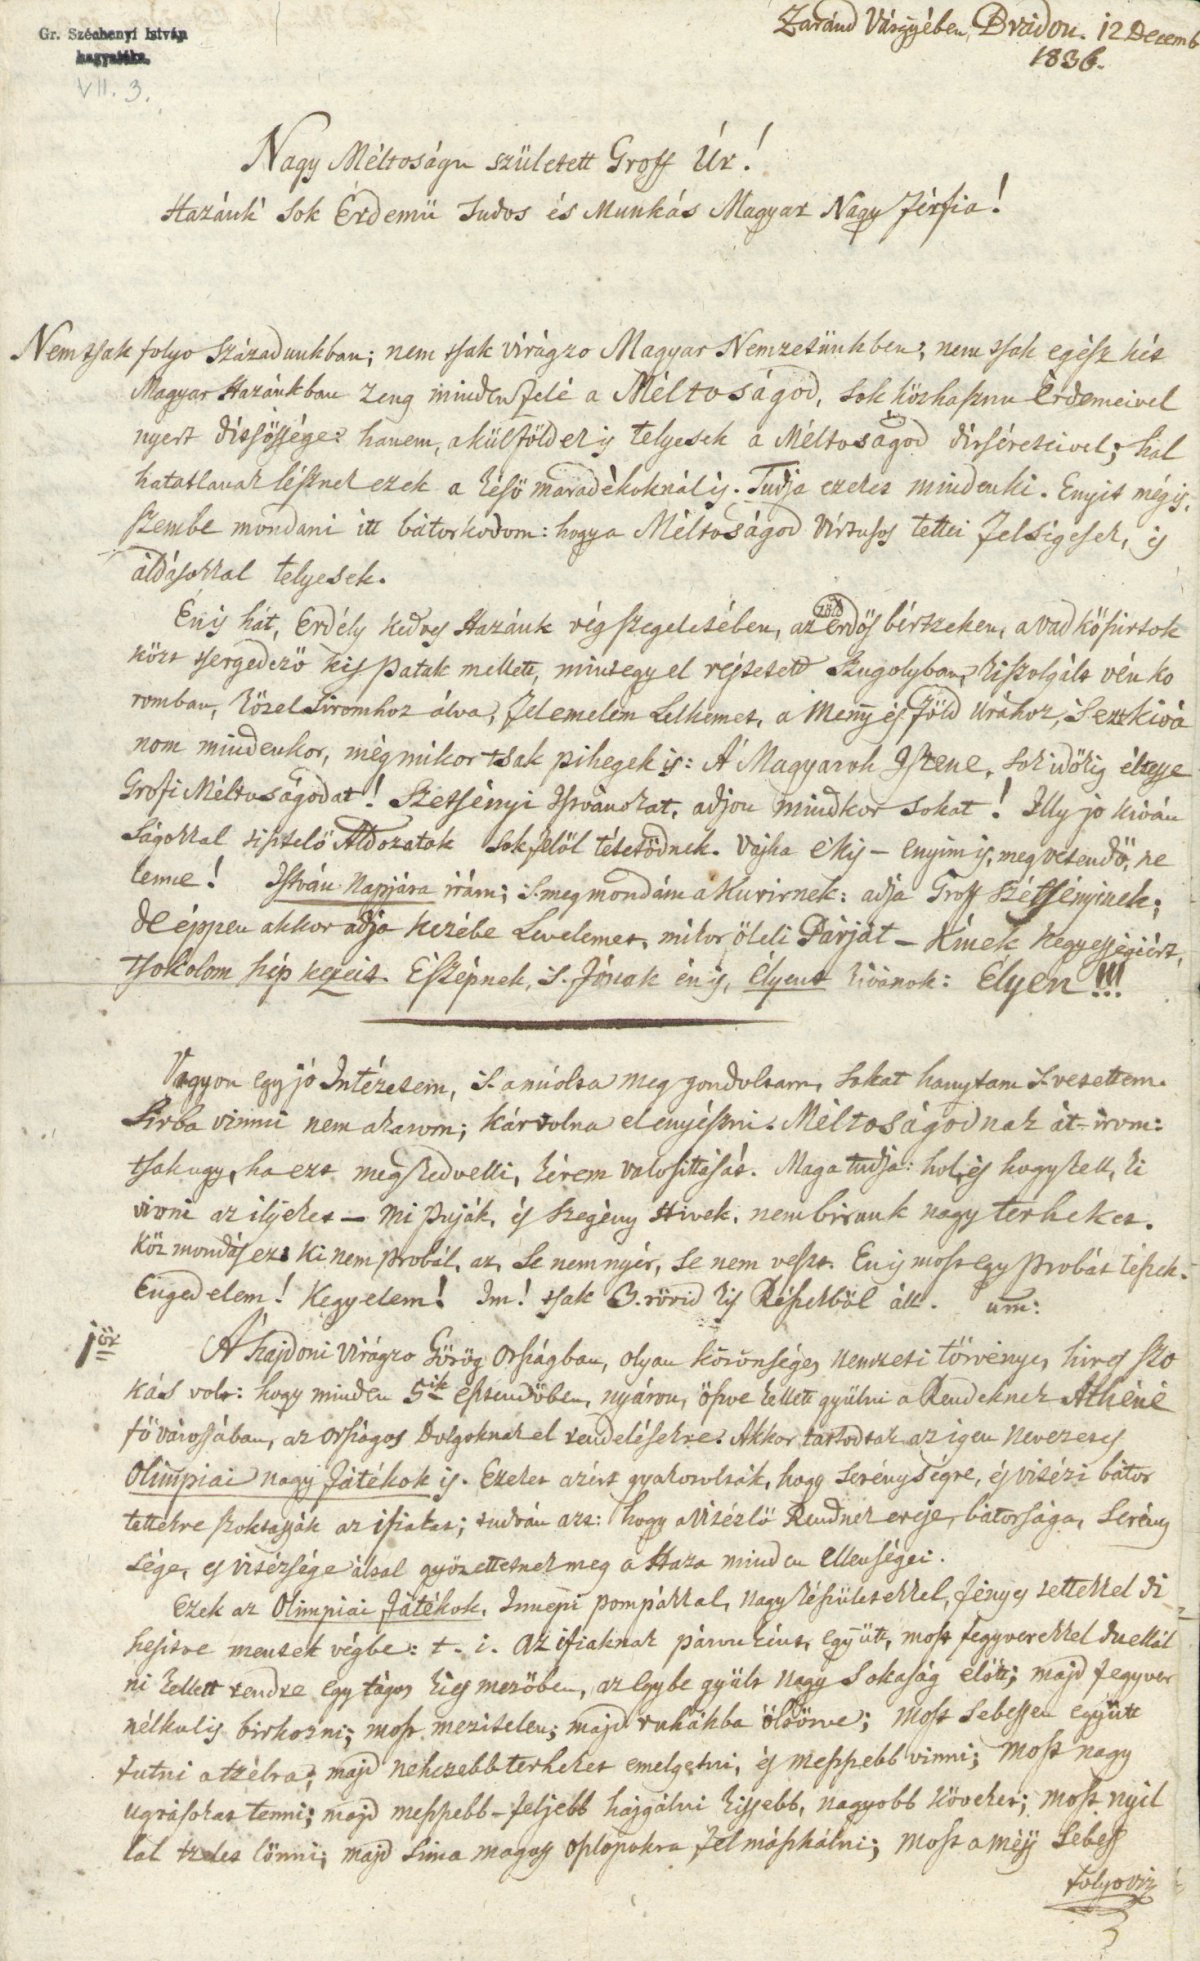 Gr. Széchenyi István
hagyatéka.
VII. 3.
Zaránd Vármgyében, Brádon. 12 Decemb
1836.
Nagy Méltoságu született Groff Úr!
Hazánk' sok Érdemü Tudos és Munkás Magyar Nagy Férfia!
Nemtsak folyo Századunkban; nem tsak virágzo Magyar Nemzetünkben; nem tsak egész két
Magyar Hazánkban zeng mindenfelé a Méltoságod, sok közhasznu Érdemeivel
nyert ditsössége: hanem, a külföldek is telyesek a Méltoságod ditséreteivel; hál
hatatlanok lésznek ezek a késö maradékoknál is. Tudja ezeket mindenki. Enyit mégis,
szembe mondani itt bátorkodom: hogy a Méltoságod Virtusos tettei Felségesek, is
áldásokkal telyesek.
Én is hát, Erdély kedves Hazánk vég szegeletében, az zöld erdös bértzeken, a vad kösirtok
közt tsergedezö kis patak mellett, mintegy el rejtetett Szugolyban, kiszolgált vén ko
romban, közel Siromhoz álva, fel emelem Lelkemet, a Menny és Föld Urához, s ezt kivá
nom mindenkor, még mikor tsak pihegek is: A' Magyarok Istene, sok idökig éltesse
Grofi Méltoságodat! Szetsényi Istvánokat, adjon mindkor sokat! Illy jo kiván
ságokkal tisztelö Áldozatok sokfelöl tétetödnek. Vajha e kis – enyim is, meg vetendö, ne
lenne! István Napjára irám; s. meg mondám a Kurirnek: adja Groff Szétsényinek;
de éppen akkor adja kezébe Levelemet, mikor öleli Párját – Kinek kegyességiért,
tsokolom szép kezeit. E Szépnek, s. Jónak én is, élyent kivánok: Élyen!!!
Vagyon egy jó Intézetem, s. a miolta meg gondoltam, sokat hanytam s. vetettem.
Sirba vinni nem akarom; kár volna el enyészni. Méltoságodnak át-irom:
tsak ugy, ha ezt meg kedvelli, kérem valosittását. Maga tudja: hol, és hogy kell, ki
vivni az ilyeket – mi puják, és szegény Hivek, nem birunk nagy terheket.
Köz mondás ez: Ki nem probál, az, se nem nyér, se nem veszt. En is most egy probát tészek.
Engedelem! Kegyelem! Im! tsak 3. rövid kis Részekböl áll. um:
1ör A' hajdoni virágzo Görög országban, olyan közönséges nemzeti törvényes hires szo
kás volt: hogy minden 5ik esztendöben, nyáron, öszve kellett gyülni a Rendeknek Athéné
fö várossában, az országos Dolgoknak el rendelésekre. Akkor tartodtak az igen nevezetes
Olimpiai nagy Játékok is. Ezeket azért gyakorolták, hogy serénységre, és vitézi bátor
tettekre szoktassák az ifiakat; tudván azt: hogy a vitézlö Rendnek ereje, bátorsága, serény
sége, es vitézsége által gyözettetnek meg a Haza minden ellenségei.
Ezek az Olimpiai Játékok, Innepi pompákkal, nagy készületekkel, fényes tettekkel di
tsösitve mentek végbe: t. i. az ifiaknak páronként, együtt, most fegyverekkel duellál
ni kellett rendre egy tágas kies mezöben, az egybe gyült nagy Sokaság elött; majd fegyver
nélkulis birkozni; most mezitelen; majd ruhákba öltözve; most sebessen együtt
futni a tzélra; majd nehezebb terheket emelgetni, és messzebb vinni; most nagy
ugrásokat tenni; majd messzebb-feljebb hajgálni kissebb, nagyobb köveket; most nyil
lal tzélt lönni; majd sima magas oszlopokra fel mászkálni; most a mély sebess
folyo viz